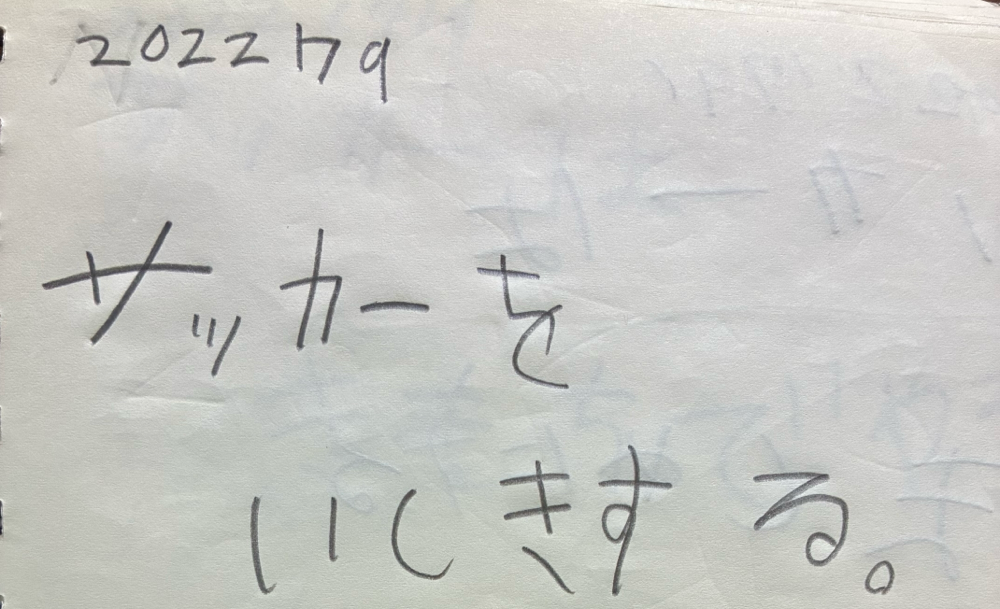 2022179
サッカーを
いしきする。